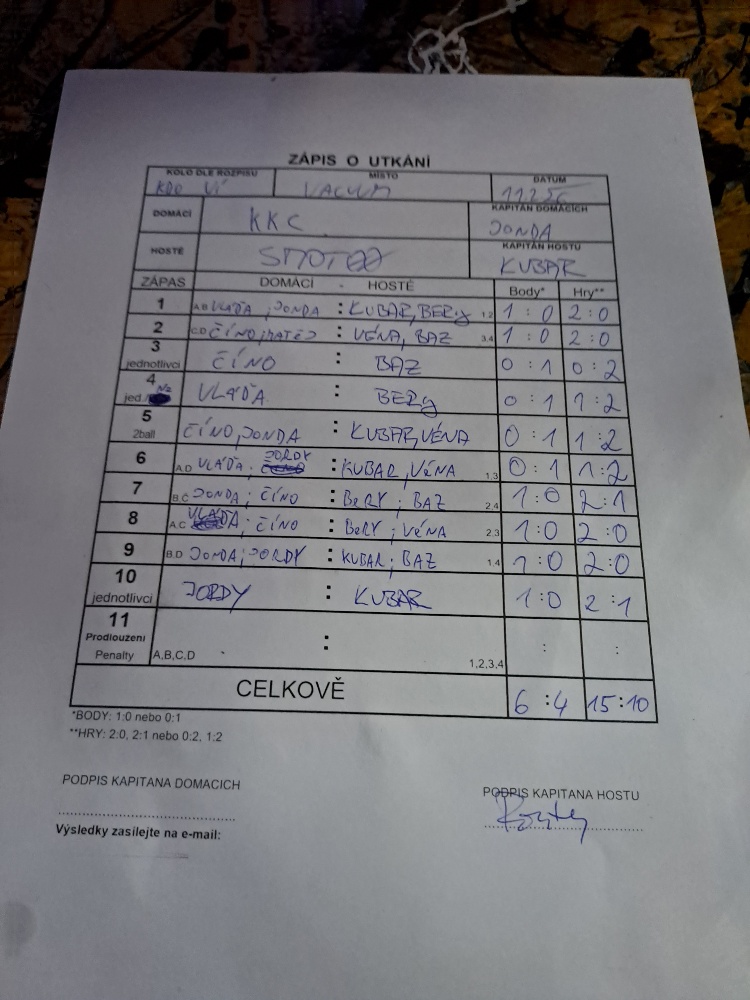 ZÁPIS O UTKÁNÍ
KOLO DLE ROZPISU MÍSTO DATUM
KDO VÍ VACUUM
DOMÁCÍ KKC KAPITÁN DOMÁCÍCH JONDA
HOSTÉ KAPITÁN HOSTŮ KUBAR
ZÁPAS DOMÁCÍ - HOSTÉ Body* Hry**
1 A,B VLAĎA, JONDA : KUBAR, BERY 1,2 1:0 2:0
2 C,D ČÍNO, MATĚJ : VÉNA, BAZ 3,4 1:0 2:0
3 jednotlivci ČÍNO : BAZ 0:1 0:2
4 jed./ VLAĎA : BERY 0:1 1:2
5 2ball ČÍNO, JONDA : KUBAR, VÉNA 0:1 1:2
6 A,D VLAĎA, JORDY : KUBAR, VÉNA 1,3 0:1 1:2
7 B,C JONDA; ČÍNO : BERY; BAZ 2,4 1:0 2:1
8 A,C VLAĎA; ČÍNO : BERY; VÉNA 2,3 1:0 2:0
9 B,D JONDA; JORDY : KUBAR; BAZ 1,4 1:0 2:0
10 jednotlivci JORDY : KUBAR 1:0 2:1
11 Prodlouzeni Penalty A,B,C,D : 1,2,3,4 : :
CELKOVĚ 6:4 15:10
*BODY: 1:0 nebo 0:1
**HRY: 2:0, 2:1 nebo 0:2, 1:2
PODPIS KAPITANA DOMACICH PODPIS KAPITANA HOSTU
Výsledky zasílejte na e-mail: